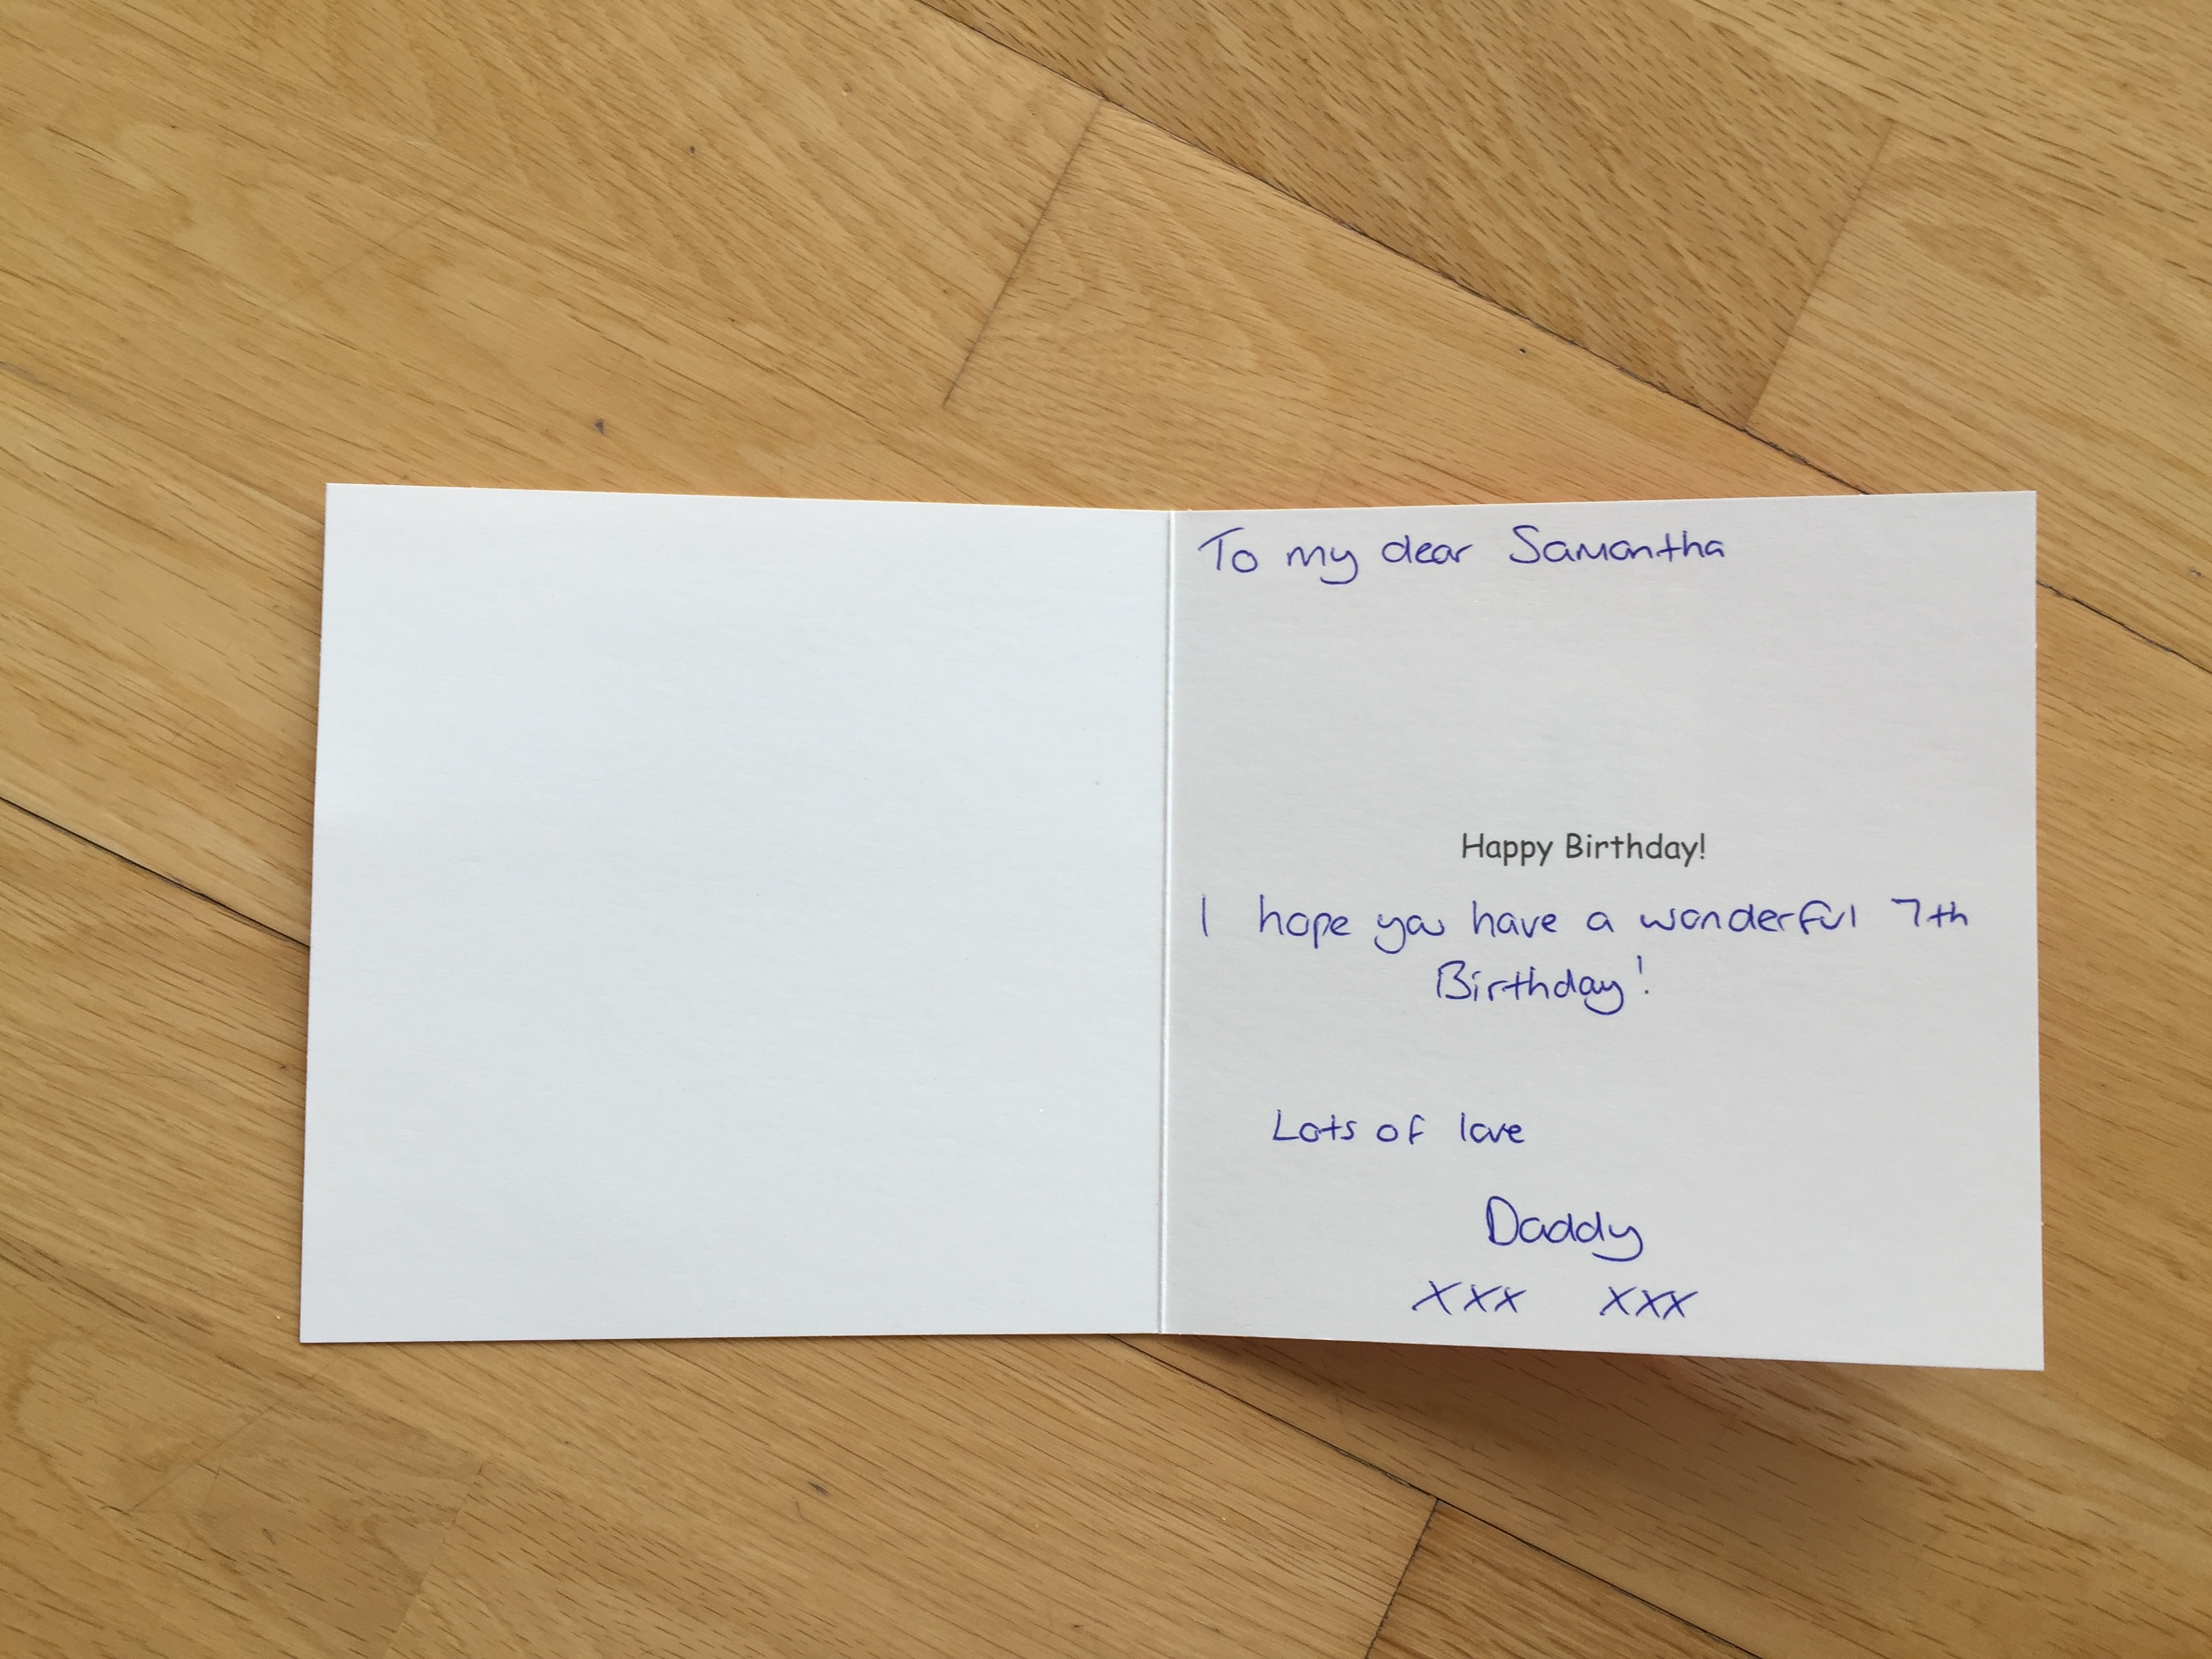 To my dear Samantha
Happy Birthday!
I hope you have a wonderful 7th
Birthday!
Lots of love
Daddy
xxx xxx